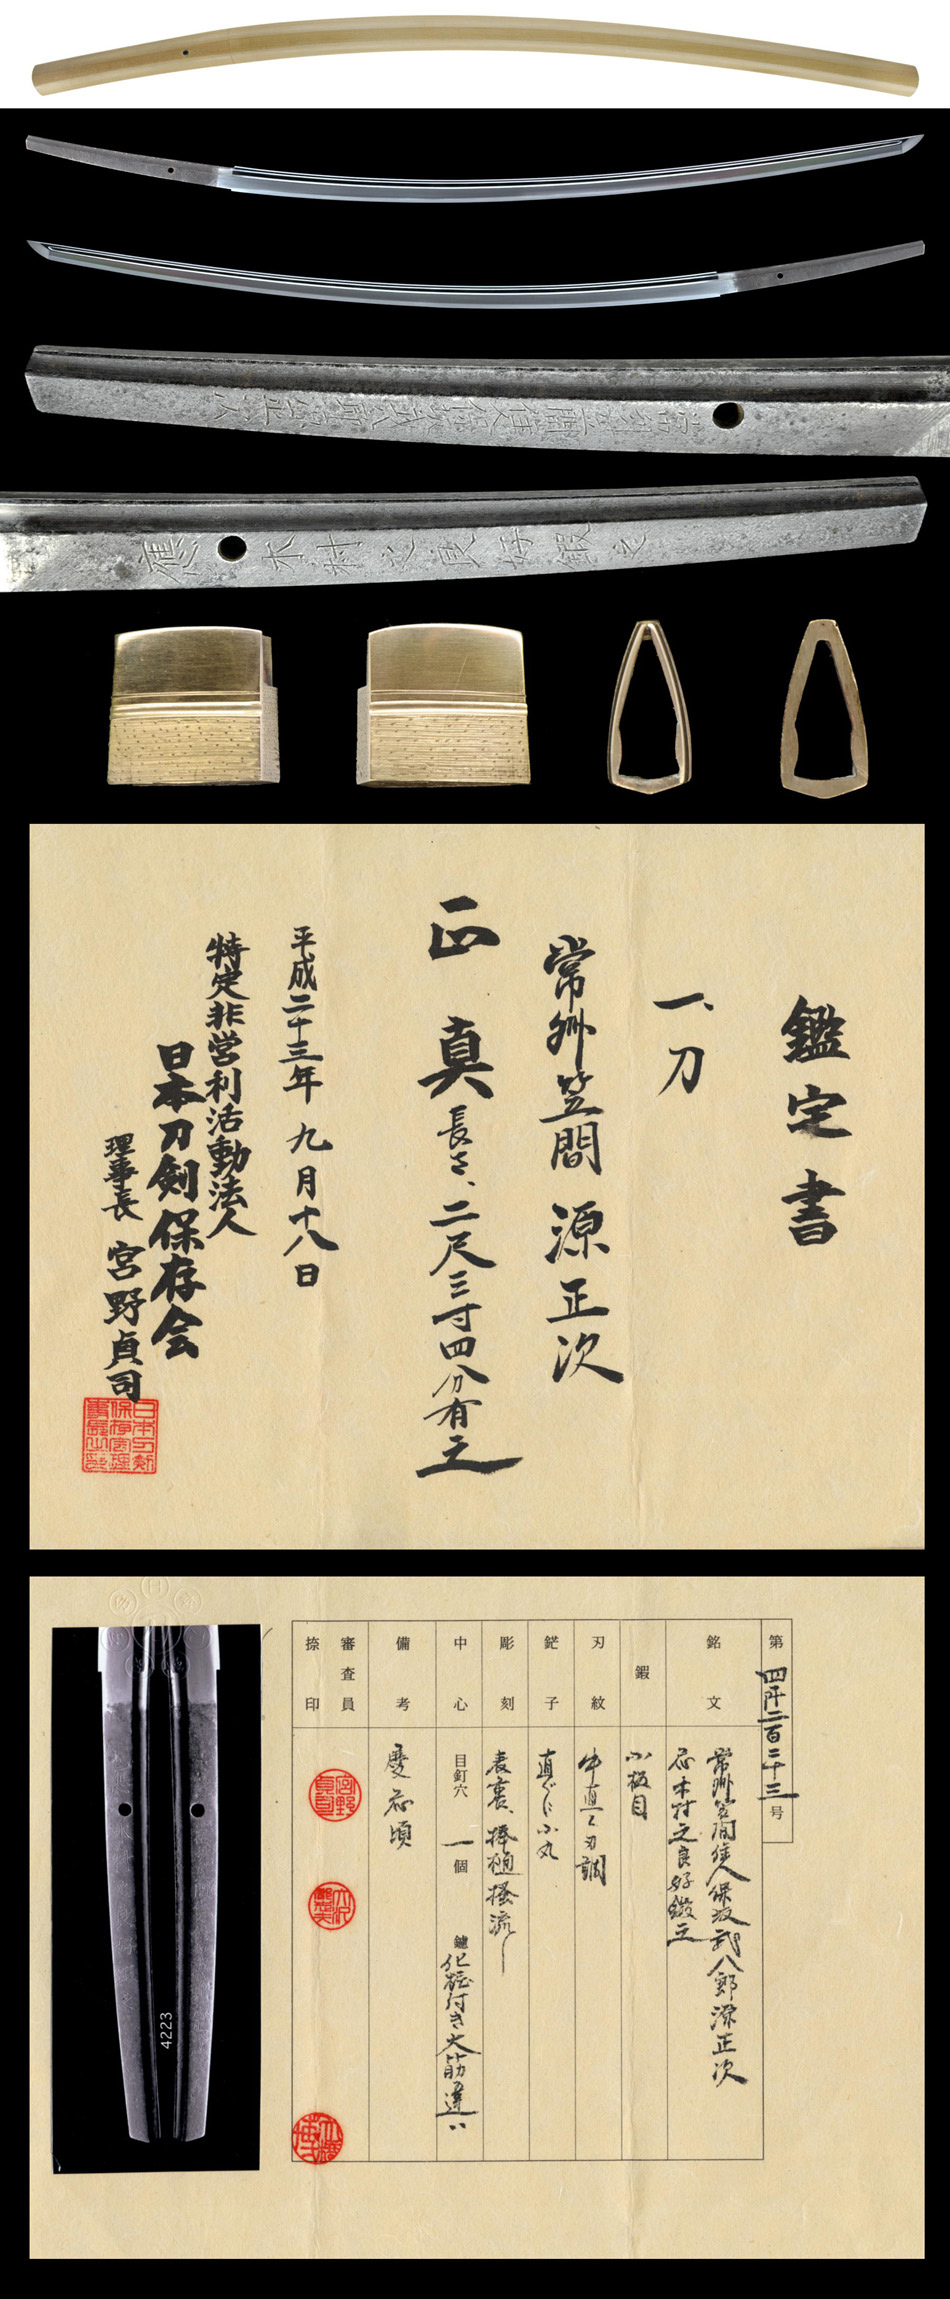 應木村之良好鍛之
鑑定書
一、刀
常州笠間 源正次
正真
長さ、二尺三寸四分有之
平成二十三年 九月十八日
特定非営利活動法人
日本刀剣保存会
理事長 宮野貞司
第四阡二百二十三号
銘文
常州笠間住人保坂武八郎源正次
応木村之良好鍛之
鍜
小板目
刃紋
中直ぐ刃調
鋩子
直ぐに小丸
彫刻
表裏、棒樋掻流し
中心
目釘穴 一個
鑢 化粧付き大筋違い
備考
慶応頃
審査員
捺印
4223